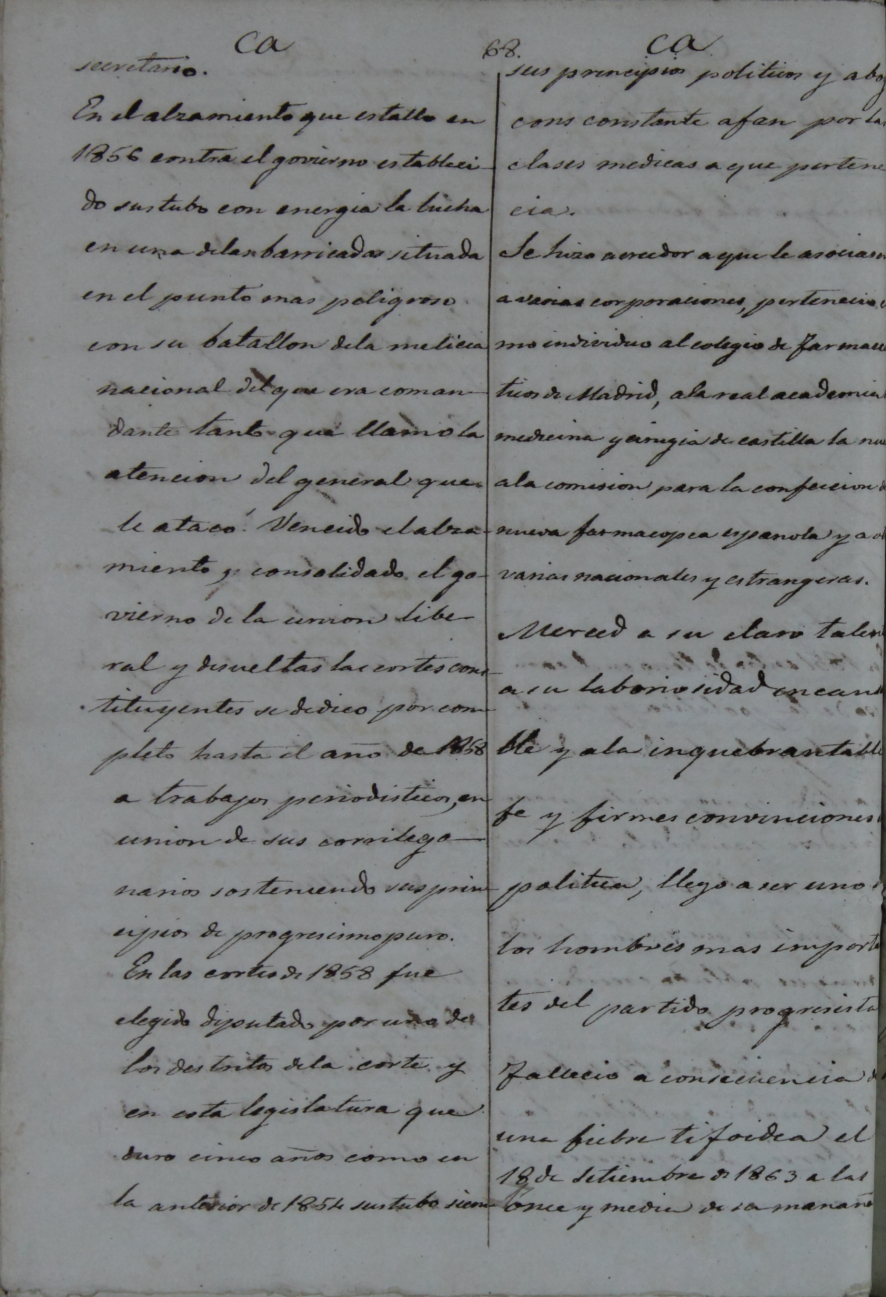 ca
68.
ca
secretario.
En el alzamiento que estallo en
1856 contra el govierno estableci-
do sustubo con energia la lucha
en una delas barricadas situada
en el punto mas peligroso
con su batallon dela melicia
nacional del que era coman-
dante tanto que llamo la
atencion del general que
le atacó. Vencido el alza-
miento y consolidado el go-
vierno de la union libe-
ral y disueltas las cortes cons-
tituyentes se dedico por com-
pleto hasta el año de 1858
a trabajos periodisticos, en
union de sus correlego-
narios sosteniendo sus prin-
cipios de progresismo puro.
En las cortes de 1858 fue
elegido diputado por uno de
los destritos dela corte y
en esta legislatura que
duro cinco años como en
la anterior de 1854 sustubo siem-
sus principios politicos y abog
cons constante afan por la
clases medicas a que pertene
cia.
Se hizo acreedor a que le asociasen
a varias corporaciones, pertenecio c
mo individuo al colegio de farmace
ticos de Madrid, ala real academia
medicina y cirugia de castilla la nue
ala comision para la confeccion d
nueva farmacopea española y a o
varias nacionales y estrangeras.
Merced a su claro talen
a su laboriosidad incans
ble y ala inquebrantable
fe y firmes convinciones
politica, llego a ser uno d
los hombres mas importa
tes del partido progresista
Fallecio a consecuencia d
una fiebre tifoidea el
18 de setiembre de 1863 a las
once y media de sa manaña